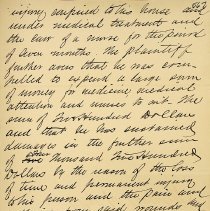 injury confined to his house
under medical treatment and
the care of a nurse for the period
of seven months. The plaintiff
further avers that he was com-
pelled to expend a large sum
of money for medicine medical
attention and nurses to wit: The
sum of Five Hundred Dollars
and that he has sustained
damages in the further sum
of Thousand Five Hundred
Dollars by the reason of the loss
of time and permanent injury
to his person and the pain and
said wounds and